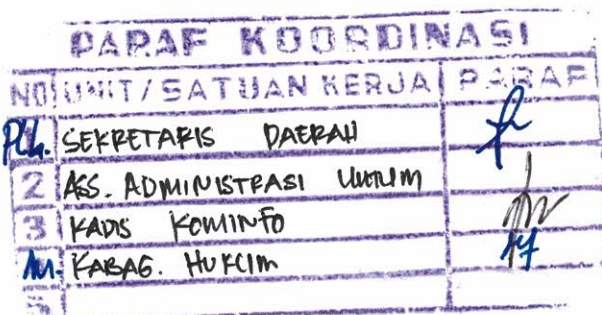 PARAF KOORDINASI
NO UNIT/SATUAN KERJA PARAF
Plh. SEKRETARIS DAERAH
2 ASS. ADMINISTRASI UMUM
3 KADIS KOMINFO
An. KABAG. HUKUM
5